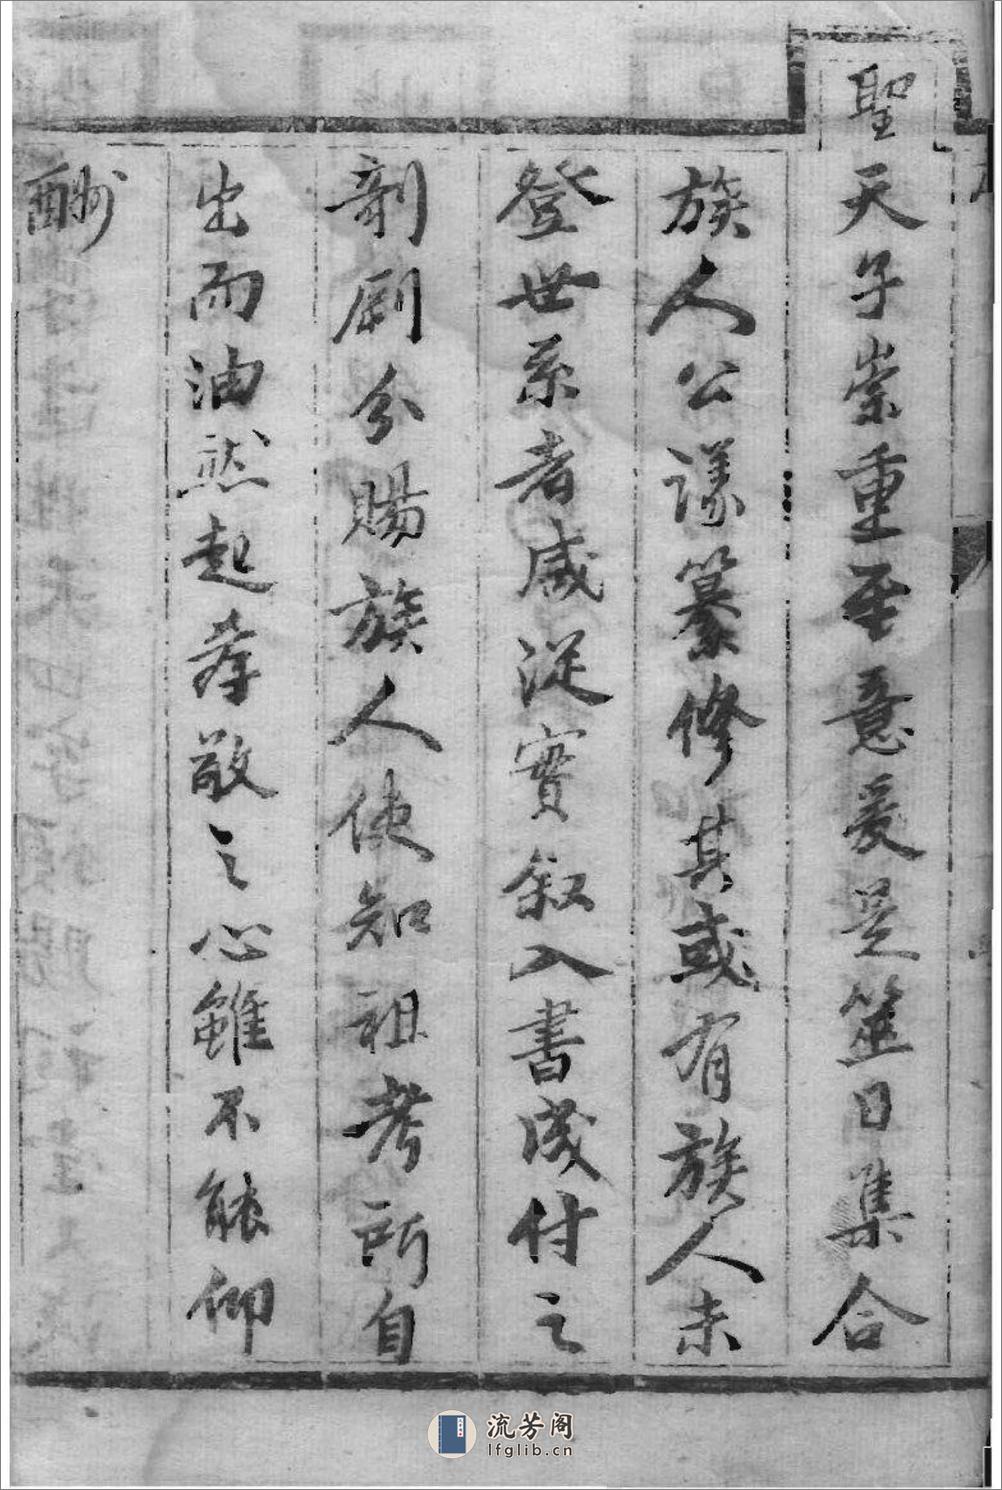 聖天子崇重至意爰是筮日集合
族人公議纂修其或有族人未
登世系者咸從實叙入書成付之
剞劂分賜族人使知祖考所自
出而油然起孝敬之心雖不能仰
酬
流芳阁
lfglib.cn